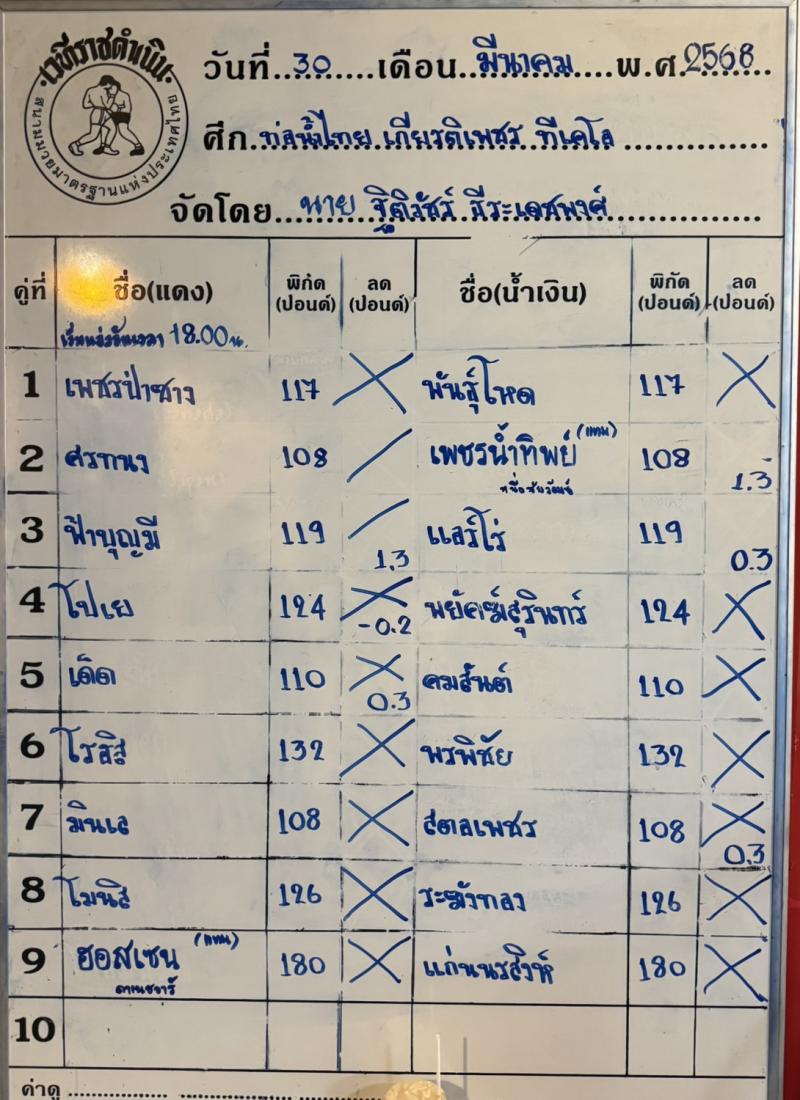 เวทีราชดำเนิน
สนามมวยมาตรฐานแห่งประเทศไทย
วันที่ 30 เดือน มีนาคม พ.ศ. 2568
ศึก ท่อน้ำไทย เกียรติเพชร ทีเคโอ
จัดโดย นาย ฐิติวัชร์ ธีระเดชพงศ์
คู่ที่ ชื่อ(แดง) พิกัด (ปอนด์) ลด (ปอนด์) ชื่อ(น้ำเงิน) พิกัด (ปอนด์) ลด (ปอนด์)
เริ่มแข่งขันเวลา 18.00 น.
1 เพชรป่าซาง 117 พันธุ์โหด 117
2 ศรทนง 108 เพชรน้ำทิพย์ (แทน) 108 1.3
3 ฟ้าบุญมี 119 1.3 แลร์โร่ 119 0.3
4 โปเย 124 -0.2 พยัคฆ์สุรินทร์ 124
5 เด็ด 110 0.3 คมสันต์ 110
6 โรสสิ 132 พรพิชัย 132
7 มินเล 108 สตลเพชร 108 0.3
8 โมนิส 126 ระฆังทอง 126
9 ฮอสเซน (แทน) 180 แก่นนรสิงห์ 180
10
ค่าดู